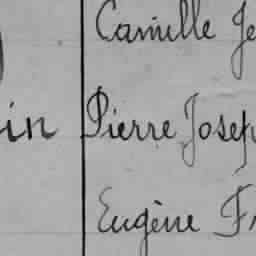 Camille Je
in Pierre Josep
Eugène Fr